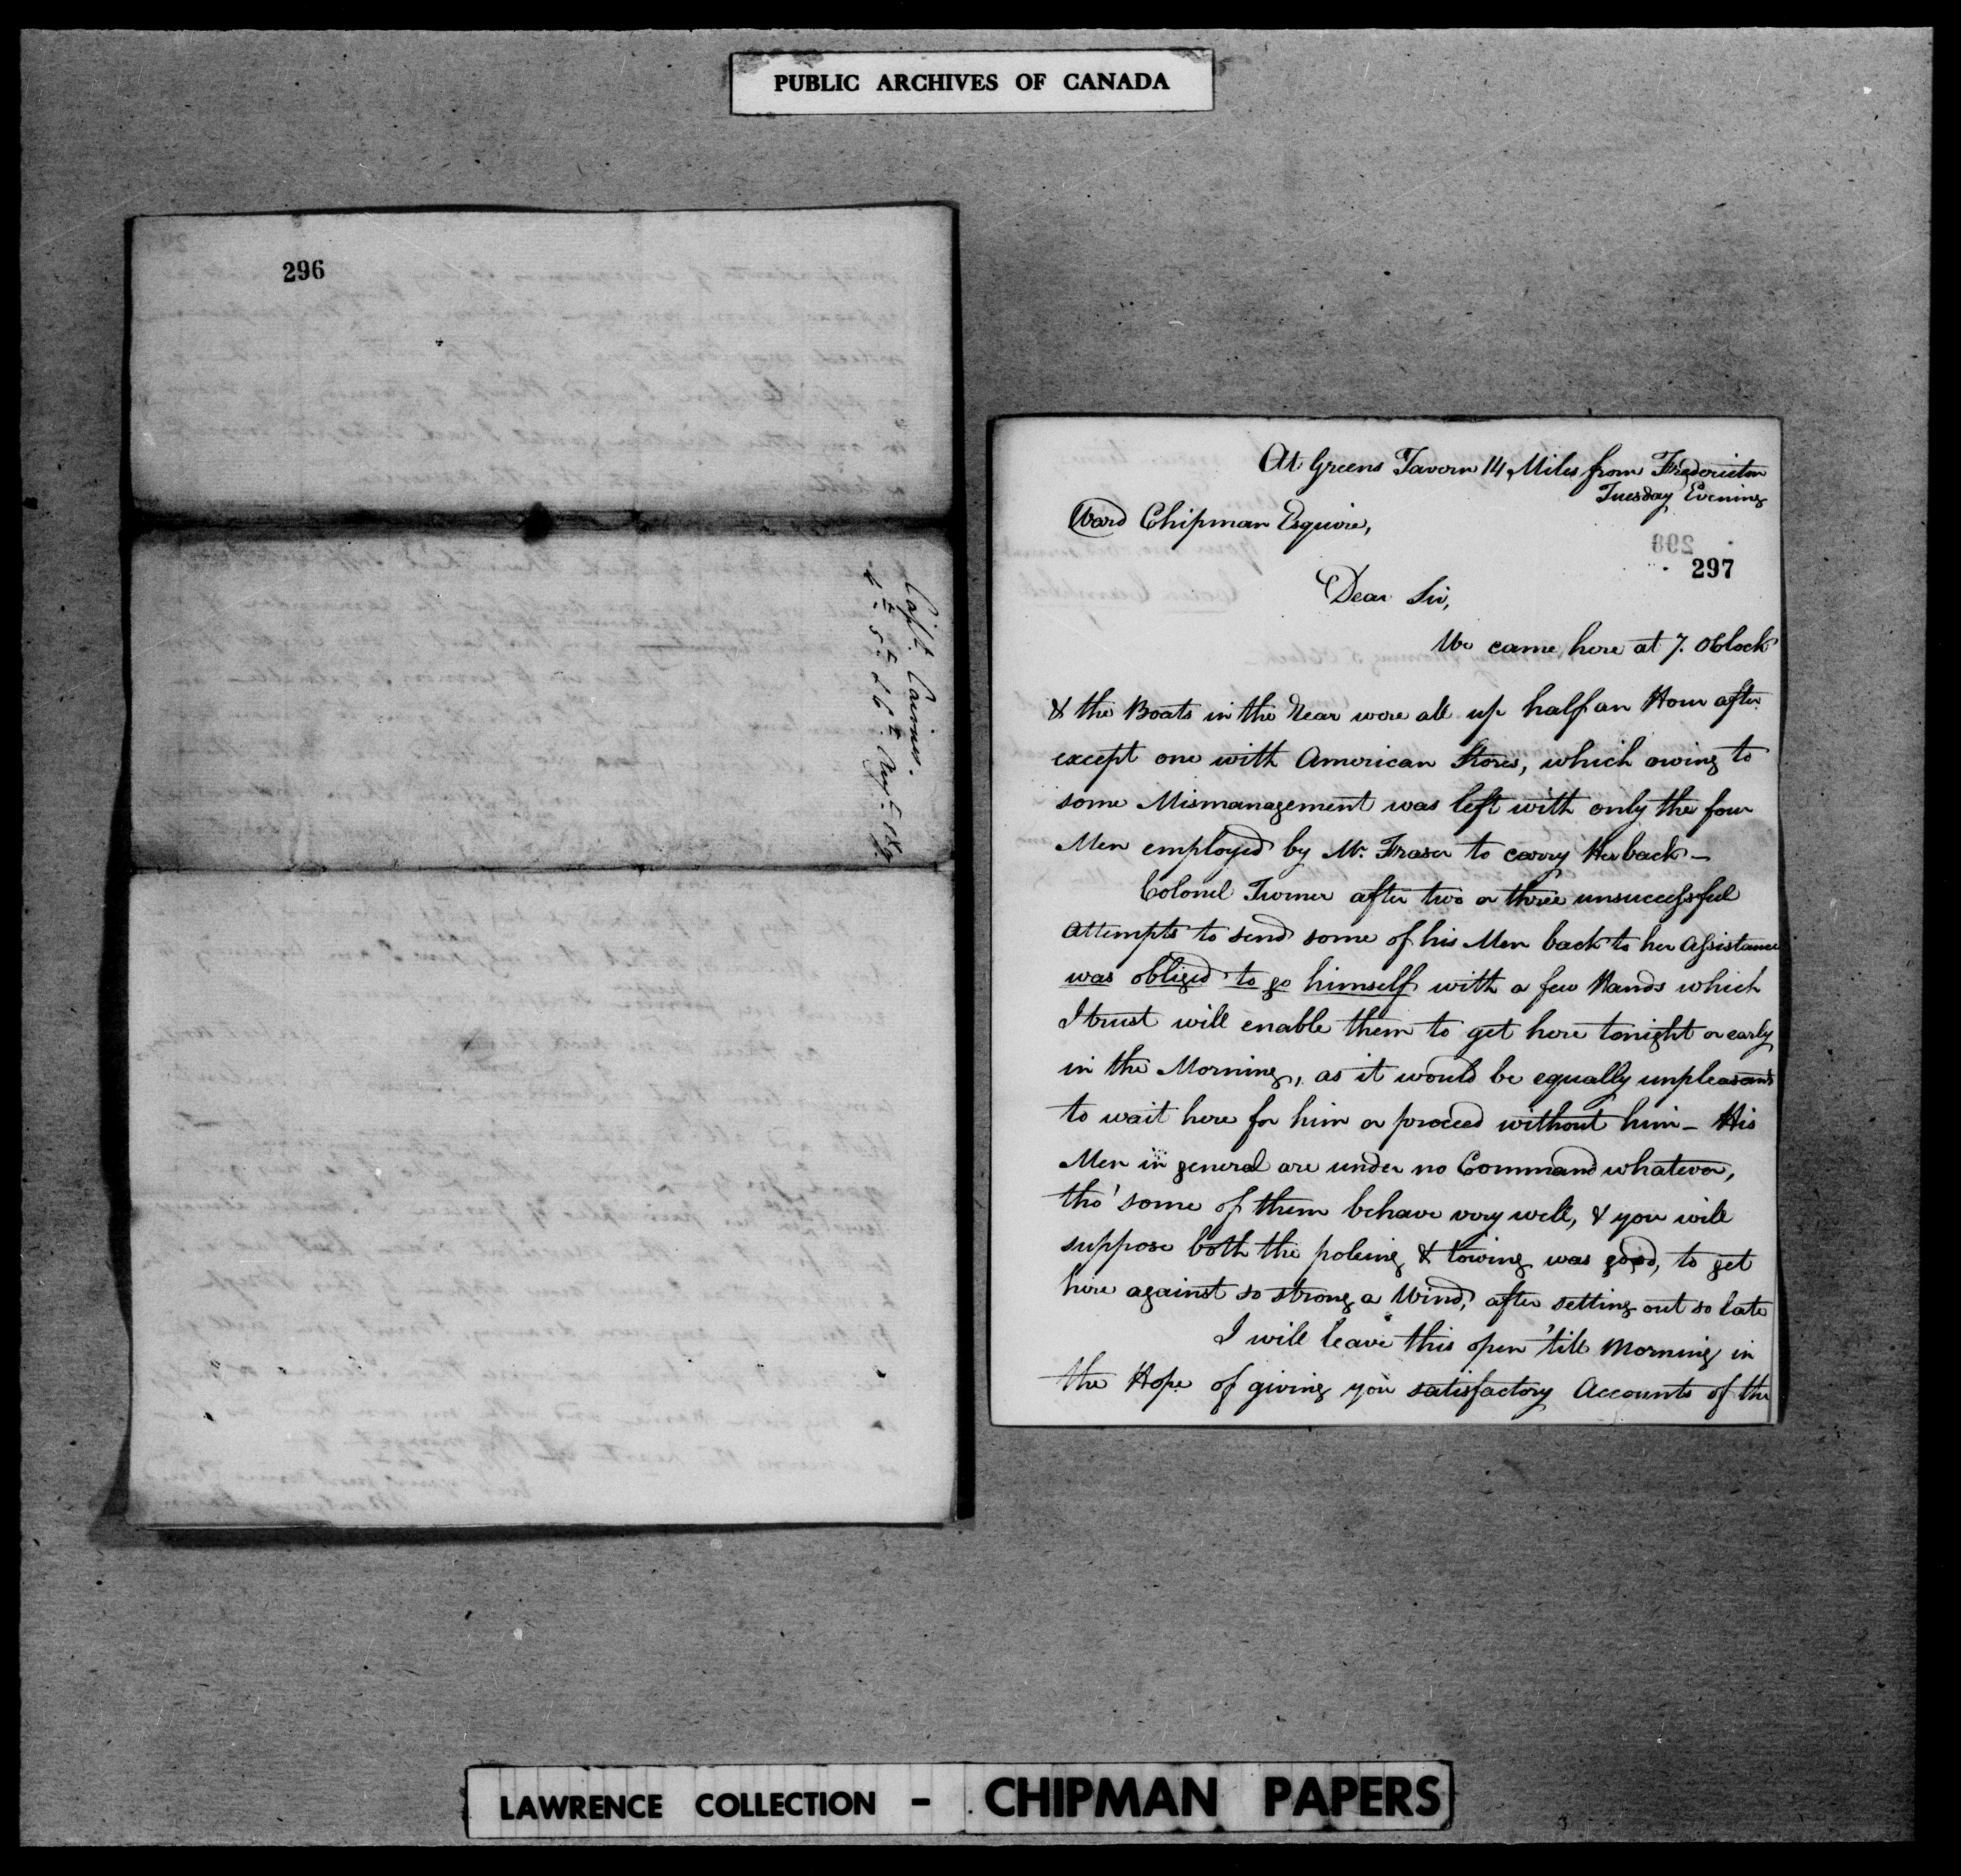 PUBLIC ARCHIVES OF CANADA
296
Capt. Cairnes.
4th. 5th. & 6th. Augt. 1819.
At Greens Tavern 14 Miles from Fredericton
Tuesday Evening
Ward Chipman Esquire,
298
297
Dear Sir,
We came here at 7. OClock
& the Boats in the Rear were all up half an Hour after
except one with American Stores, which owing to
some Mismanagement was left with only the four
Men employed by Mr. Fraser to carry Her back –
Colonel Turner after two or three unsuccessful
Attempts to send some of his Men back to her Assistance
was obliged to go himself with a few Hands which
I trust will enable them to get here tonight or early
in the Morning, as it would be equally unpleasant
to wait here for him or proceed without him – His
Men in general are under no Command whatever,
tho' some of them behave very well, & you will
suppose both the poleing & towing was good, to get
here against so strong a Wind, after setting out so late
I will leave this open 'till Morning in
the Hope of giving you satisfactory Accounts of the
LAWRENCE COLLECTION - CHIPMAN PAPERS